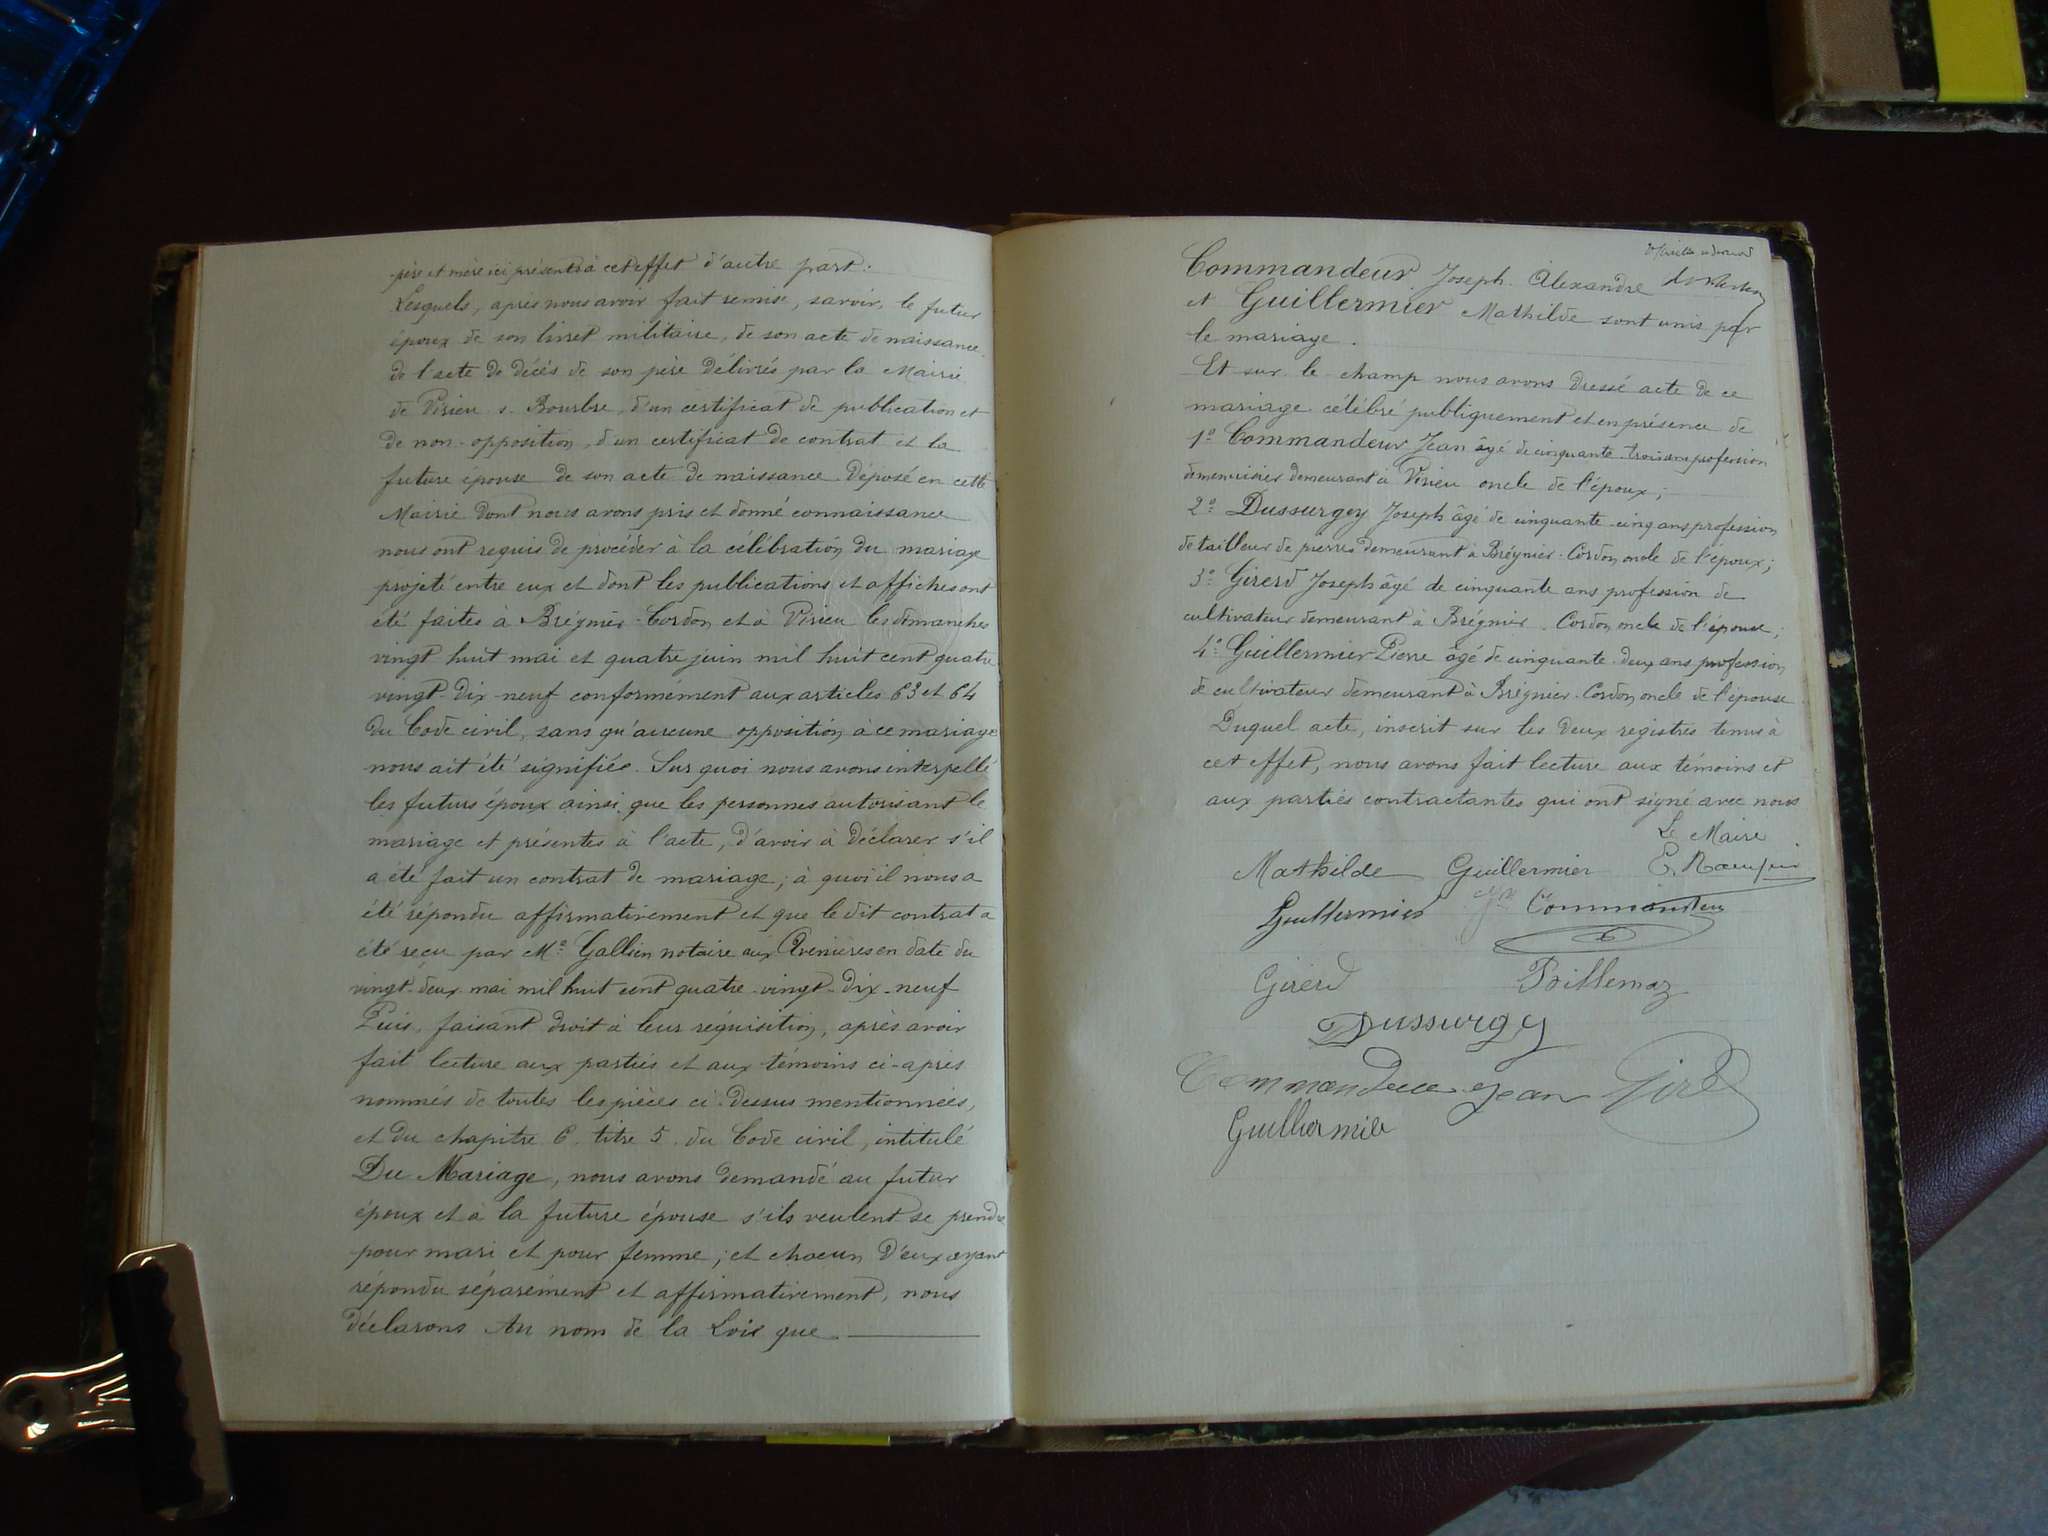 père et mère ici présents à cet effet d'autre part.
Lesquels, après nous avoir fait remise, savoir, le futur
époux de son livret militaire, de son acte de naissance
de l'acte de décès de son père délivrés par la Mairie
de Virieu s. Bourbre, d'un certificat de publication et
de non-opposition, d'un certificat de contrat et la
future épouse de son acte de naissance déposé en cette
Mairie dont nous avons pris et donné connaissance
nous ont requis de procéder à la célébration du mariage
projeté entre eux et dont les publications et affiches ont
été faites à Brégnier-Cordon et à Virieu les dimanches
vingt huit mai et quatre juin mil huit cent quatre
vingt-dix-neuf conformément aux articles 63 et 64
du Code civil, sans qu'aucune opposition à ce mariage
nous ait été signifiée. Sur quoi nous avons interpellé
les futurs époux ainsi que les personnes autorisant le
mariage et présentes à l'acte, d'avoir à déclarer s'il
a été fait un contrat de mariage; à quoi il nous a
été répondu affirmativement et que le dit contrat a
été reçu par Me Gallien notaire aux Avenières en date du
vingt-deux mai mil huit cent quatre-vingt-dix-neuf
Puis, faisant droit à leur réquisition, après avoir
fait lecture aux parties et aux témoins ci-après
nommés de toutes les pièces ci-dessus mentionnées,
et du chapitre 6. titre 5. du Code civil, intitulé
Du Mariage, nous avons demandé au futur
époux et à la future épouse s'ils veulent se prendre
pour mari et pour femme; et chacun d'eux ayant
répondu séparément et affirmativement, nous
déclarons Au nom de la Loi que
Commandeur Joseph Alexandre
et Guillermier Mathilde sont unis par
le mariage.
Et sur le champ nous avons dressé acte de ce
mariage célébré publiquement et en présence de
1º Commandeur Jean âgé de cinquante-trois ans profession
de menuisier demeurant à Virieu oncle de l'époux;
2º Dussurgey Joseph âgé de cinquante-cinq ans profession
de tailleur de pierres demeurant à Brégnier-Cordon oncle de l'époux;
3º Girerd Joseph âgé de cinquante ans profession de
cultivateur demeurant à Brégnier-Cordon oncle de l'épouse;
4º Guillermier Pierre âgé de cinquante-deux ans profession
de cultivateur demeurant à Brégnier-Cordon oncle de l'épouse
Duquel acte, inscrit sur les deux registres tenus à
cet effet, nous avons fait lecture aux témoins et
aux parties contractantes qui ont signé avec nous
Le Maire
Mathilde Guillermier
Guillermier Commandeur
Girerd Billemaz
Dussurgy
Commandeur Jean Gird
Guillermie